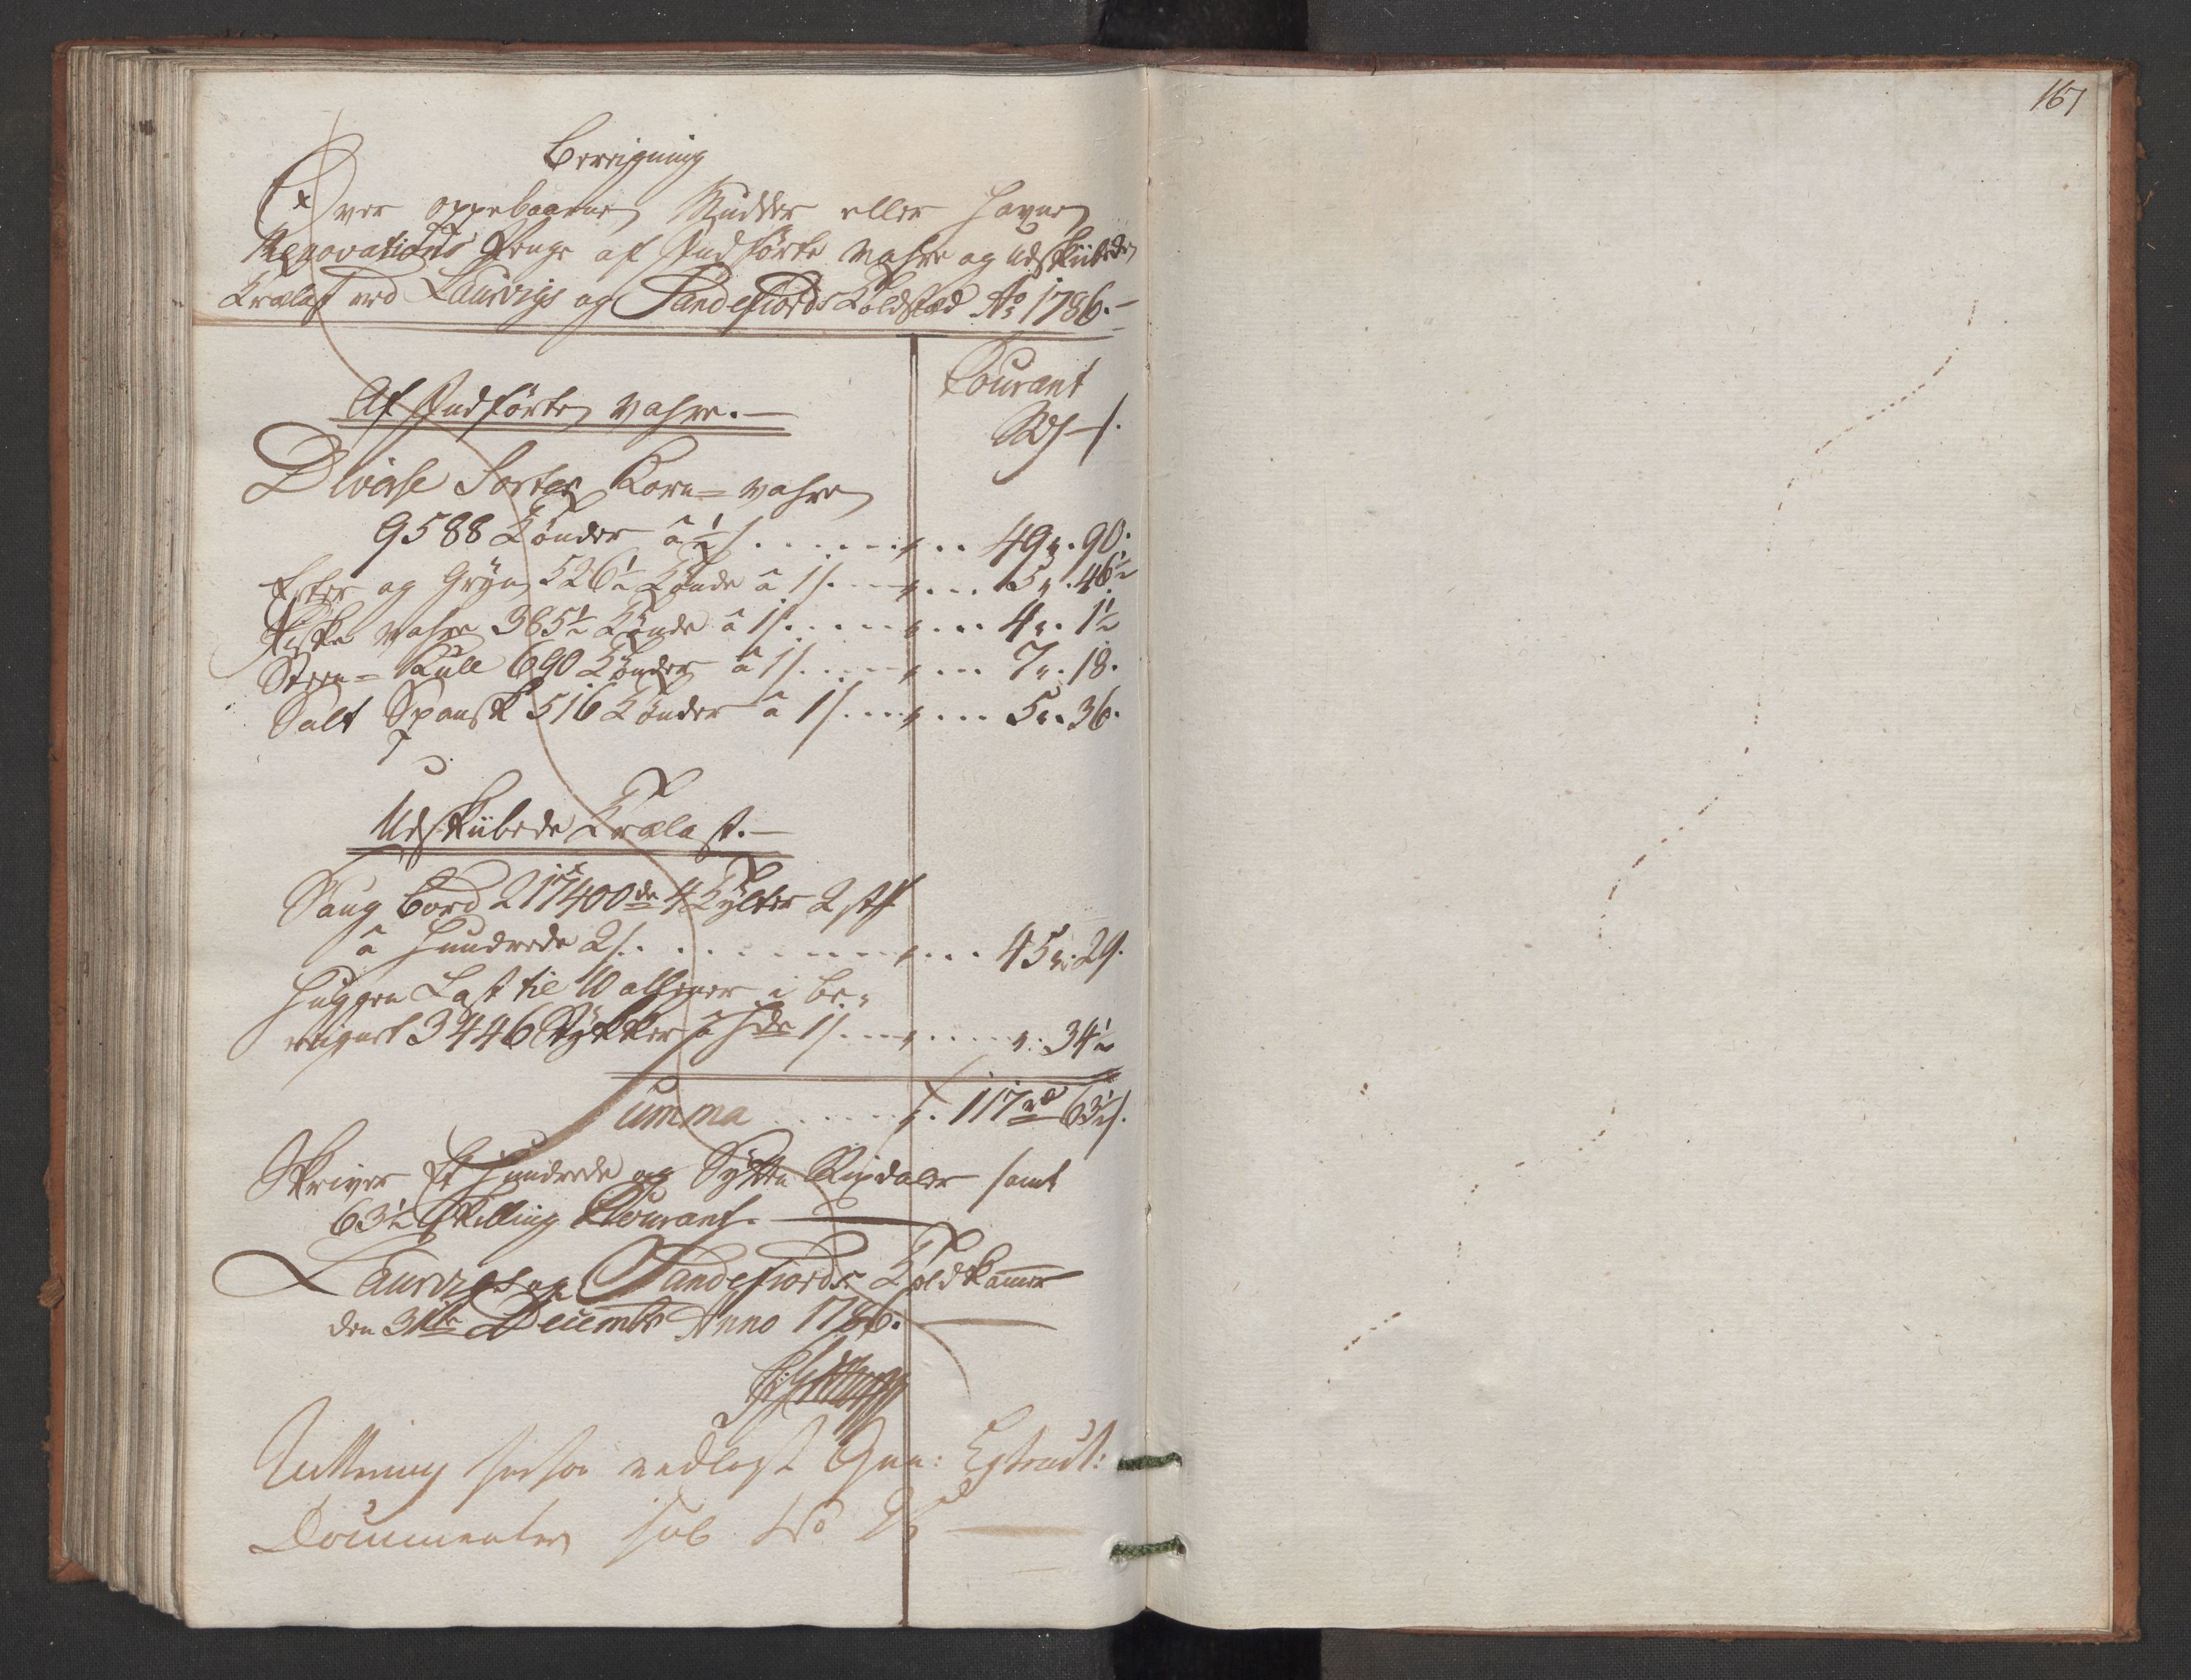 167
Beregning
Over oppebaarne Mudder eller Havne
Renovations Penge af Indførte Vahre og Udskibede
Trælast ved Laurvigs og Sandefiords Toldsted Ao 1786.-
Courant
Rd - s.
Af Indførte Vahre.-
Diverse Sorter Korn= Vahre
9588 Tønder â ½ s. . . . . . 49 „ 90.
Erter og Gryn 526½ Tønde â 1 s. . . . 5 „ 46½
Fiske Vahre 385½ Tønde â 1 s. . . . . 4 „ 1½
Steen= Kull 690 Tønder â 1 s. . . . . 7 „ 18.
Salt Spansk 516 Tønder â 1 s. . . . . 5 „ 36.
Udskibede Trælast.-
Saug Bord 217400de 4 Tylter 2 st
â Hundrede 2 s. . . . . . . . 45 „ 29.
Huggen Last til 10 allener i be„
reignet 3446 Stykker â Hde 1 s. . . . „ 34½
Summa . . . . . 117rd 63½ s.
Skriver Et Hundrede og Sytten Rixdaler samt
63½ Skilling Courant.-
Laurvigs og Sandefiords Toldkammer
den 31te Decembr Anno 1786.
Qvittering herfor vedlagt Gen: Extract:
Documenter sub No